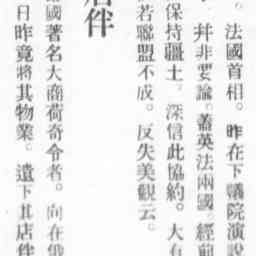 。法國首相。昨在下議院演說
。幷非要論。蓋英法兩國。經前
保持疆土。深信此協約。大有
若聯盟不成。反失美觀云。
店伴
國著名大商荷奇令者。向在俄
日昨竟將其物業。遺下其店伴